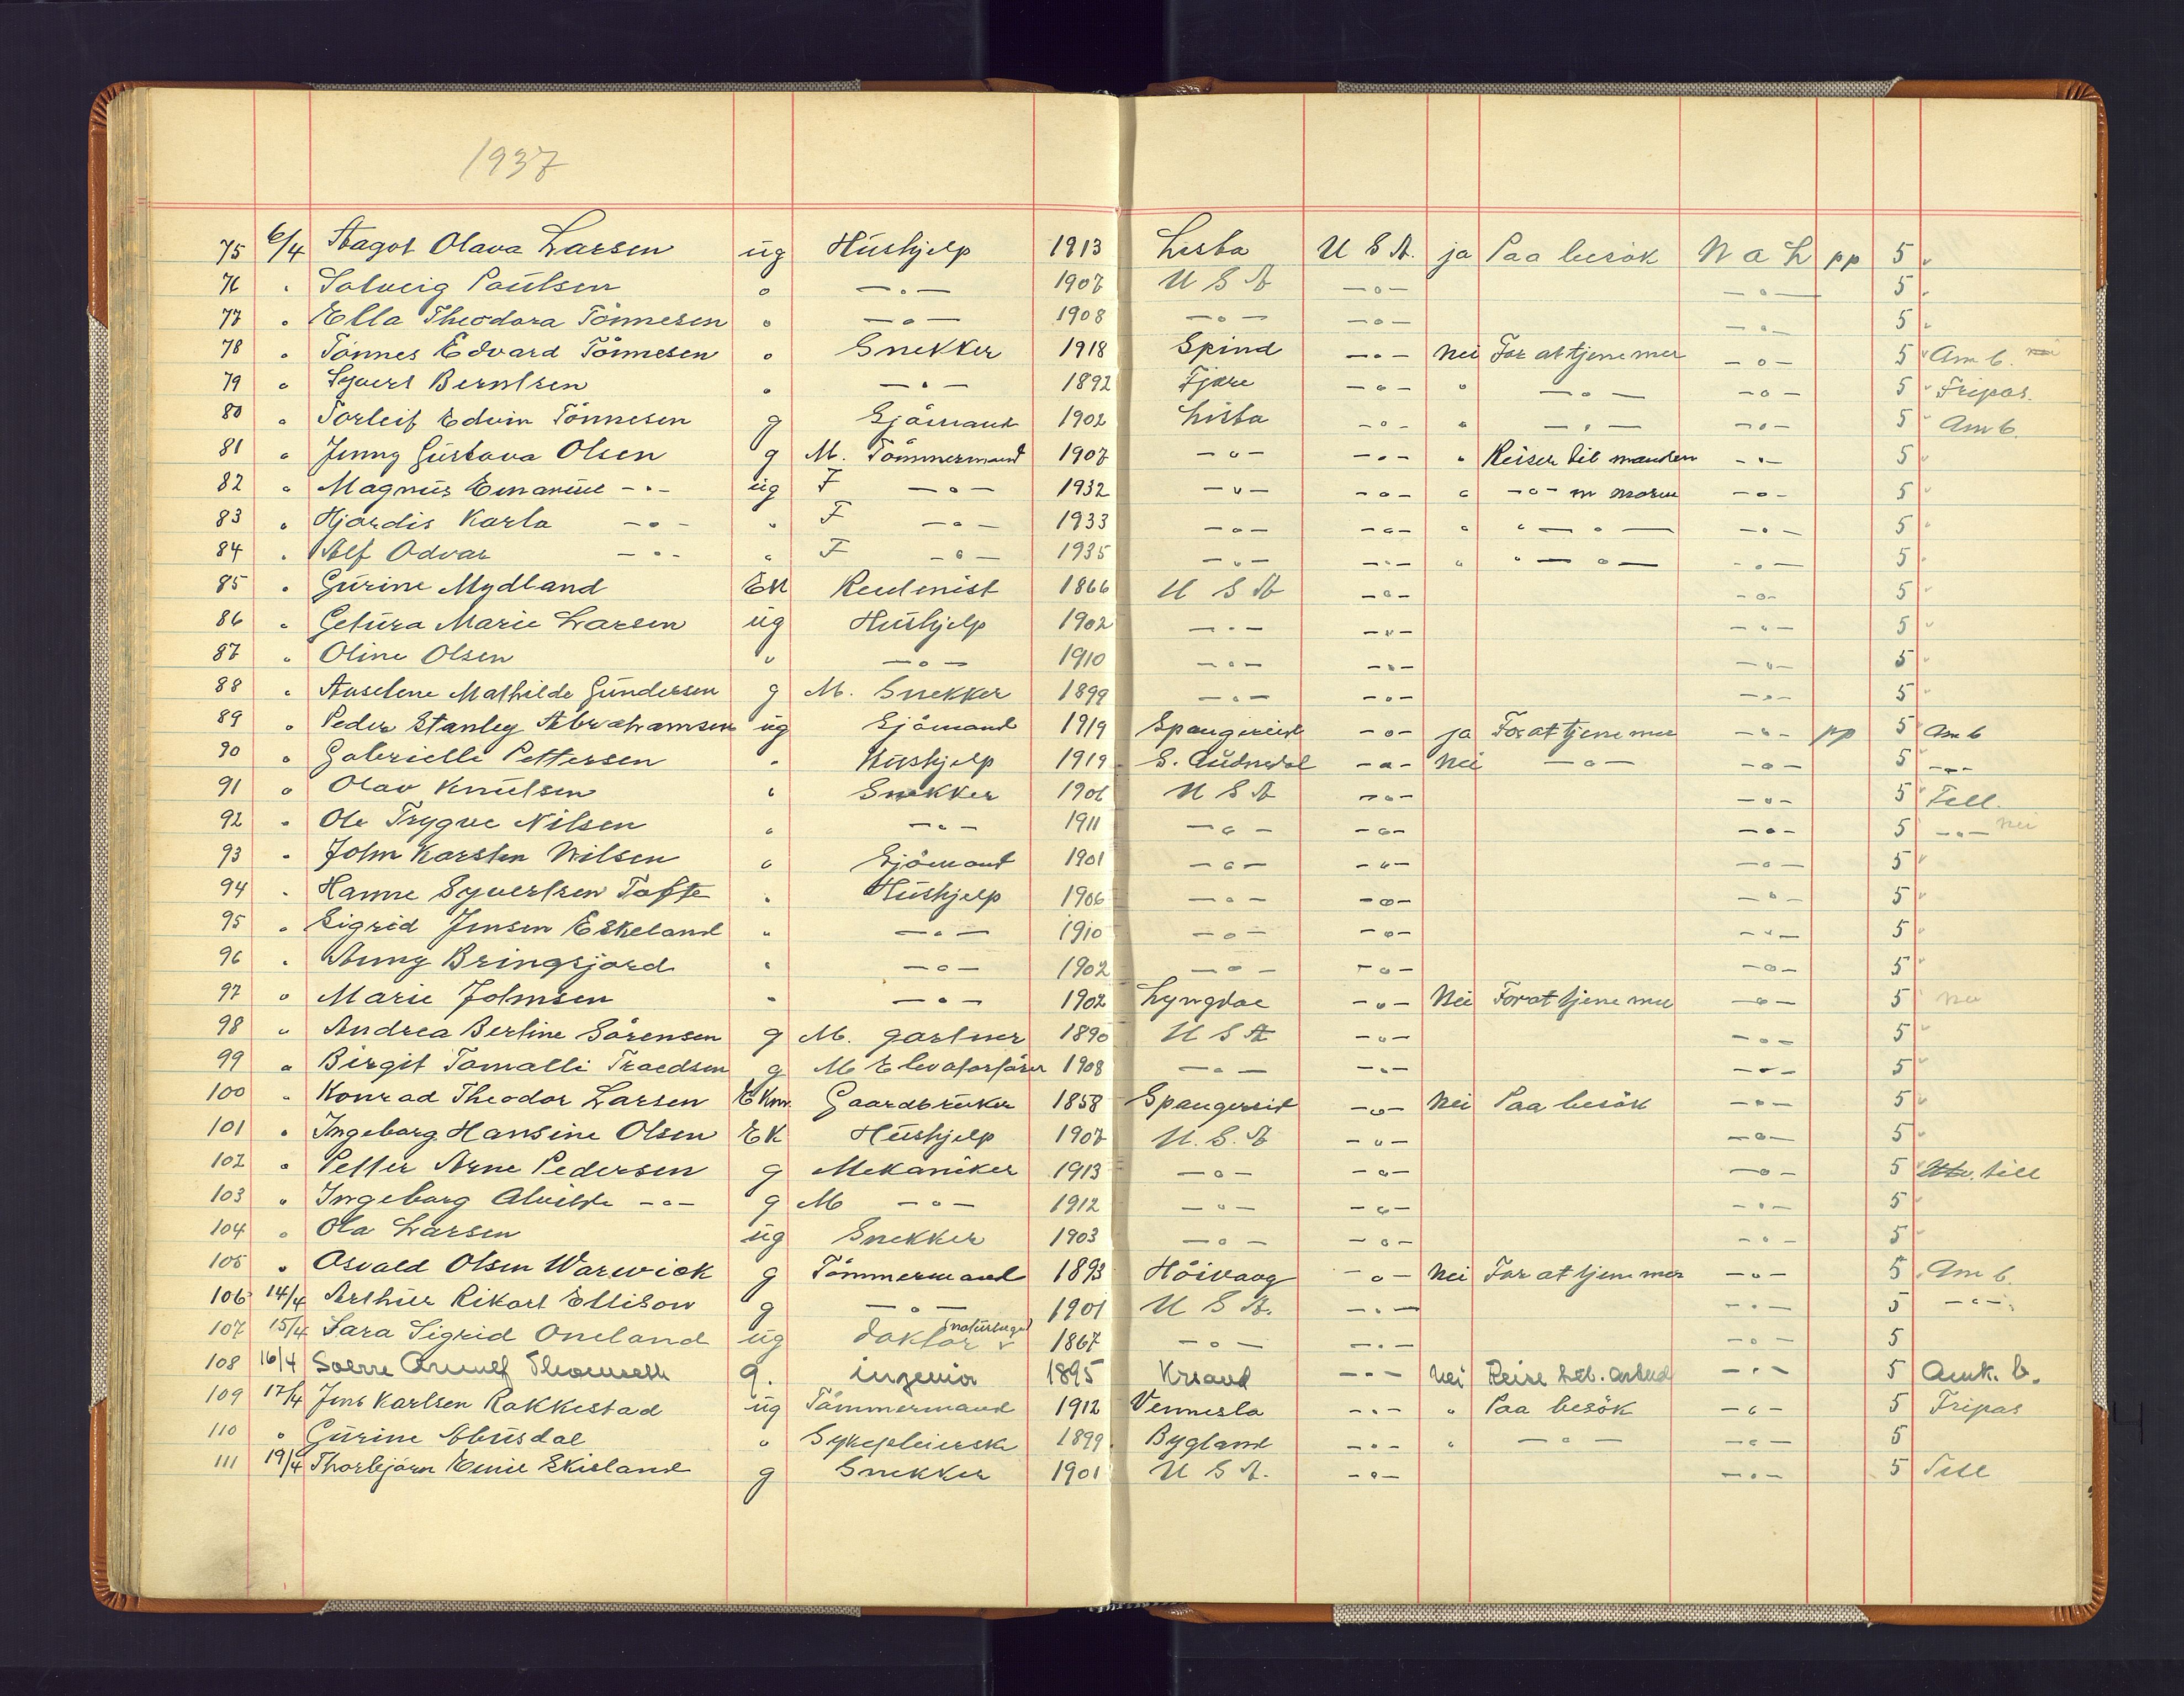 1937
75 6/4 Aagot Olava Larsen ug Hushjelp 1913 Lista U S A. ja Paa besök N a L pp 5
76 " Solveig Paulsen " — " — 1907 U S A — " — — " — 5
77 " Ella Theodora Tönnesen " — " — 1908 — " — — " — — " — 5
78 " Tönnes Edvard Tönnesen " Snekker 1918 Spind — " — Nei For at tjene mer — " — 5 Am b. nei
79 " Syvert Berntsen " — " — 1892 Fjære — " — " — " — — " — 5 Fripas.
80 " Torleif Edvin Tönnesen g Sjömand 1902 Lista — " — " — " — — " — 5 Am b.
81 " Jenny Gustava Olsen g M. Tömmermand 1907 — " — — " — " Reiser til manden — " — 5
82 " Magnus Emanuel — " — ug F — " — 1932 — " — — " — " — " — m moren — " — 5
83 " Hjördis Karla — " — " F — " — 1933 — " — — " — " " — " — — " — 5
84 " Alf Odvar — " — " F — " — 1935 — " — — " — " " — " — — " — 5
85 " Gurine Mydland EK Rentenist 1866 U S A — " — — " — 5
86 " Getura Marie Larsen ug Hushjelp 1902 — " — — " — — " — 5
87 " Oline Olsen " — " — 1910 — " — — " — — " — 5
88 " Anselene Mathilde Gundersen g M. Snekker 1899 — " — — " — — " — 5
89 " Peder Stanley Abrahamsen ug Sjömand 1919 Spangereid — " — ja For at tjene mer — " — pp 5 Am b
90 " Gabrielle Pettersen " Hushjelp 1919 S. Audnedal — " — Nei — " — — " — 5 — " —
91 " Olav Knutsen " Snekker 1906 U S A — " — — " — 5 Tell.
92 " Ole Trygve Nilsen " — " — 1911 — " — — " — — " — 5 — " — nei
93 " John Karsten Nilsen " Sjömand 1901 — " — — " — — " — 5
94 " Hanne Syvertsen Tofte " Hushjelp 1906 — " — — " — — " — 5
95 " Sigrid Jensen Eskeland " — " — 1910 — " — — " — — " — 5
96 " Anny Bringsjord " — " — 1902 — " — — " — — " — 5
97 " Marie Johnsen " — " — 1902 Lyngdal — " — Nei For at tjene mer — " — 5 nei
98 " Andrea Bertine Sörensen g M. gartner 1890 U S A — " — — " — 5
99 " Birgit Tomalli Traedsen g M Elevatorförer 1908 — " — — " — — " — 5
100 " Konrad Theodor Larsen EKm Gaardbruker 1858 Spangereid — " — Nei Paa besök — " — 5
101 " Ingeborg Hansine Olsen EK Hushjelp 1907 U. S. A — " — — " — 5
102 " Petter Arne Pedersen g Mekaniker 1913 — " — — " — — " — 5 tell
103 " Ingeborg Alvilde — " — g M — " — 1912 — " — — " — — " — 5
104 " Ola Larsen ug Snekker 1903 — " — — " — — " — 5
105 " Osvald Olsen Warwick g Tömmermand 1893 Höivaag — " — Nei For at tjene mer — " — 5 Am b.
106 14/4 Arthur Rikart Ellison g — " — 1901 U S A. — " — — " — 5 — " —
107 15/4 Sara Sigrid Oneland ug doktor 1867 — " — — " — — " — 5
108 16/4 Sverre Arnulf Thomsen g. ingeniör 1895 Krsand — " — Nei Reise til. arbeid — " — 5 Amk. b.
109 17/4 Jens Karlsen Rakkestad ug Tömmermand 1912 Vennesla — " — " Paa besök — " — 5 Fripas
110 " Gurine Abusdal " Sykepleierske 1899 Bygland — " — " — " — — " — 5
111 19/4 Thorbjörn Emil Skisland g Snekker 1901 U S A. — " — — " — 5 Tell